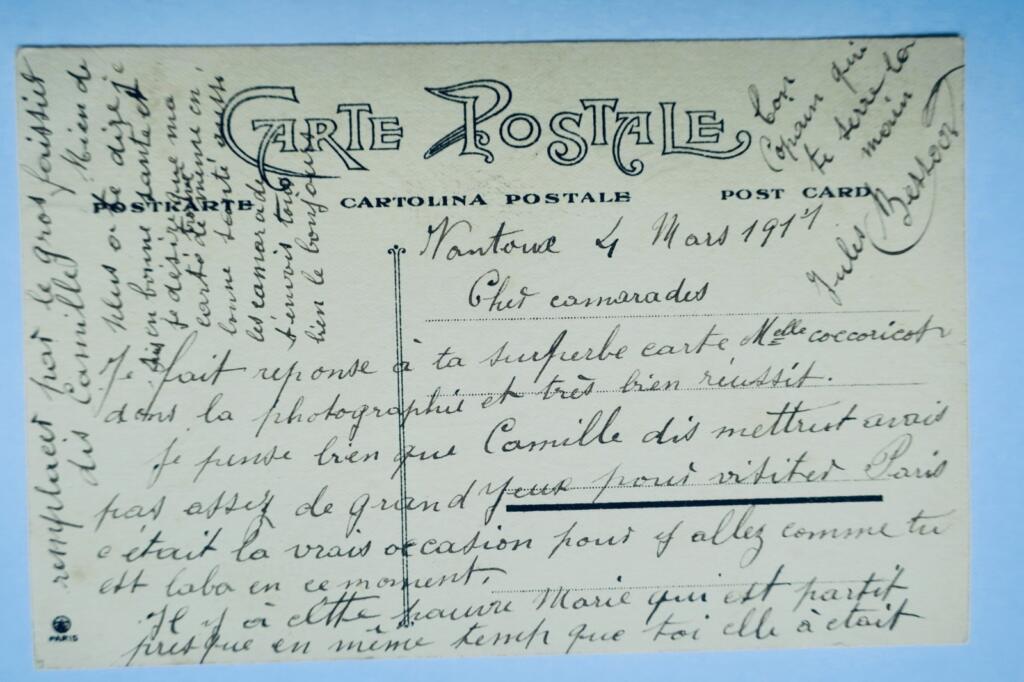 CARTE POSTALE
POSTKARTE CARTOLINA POSTALE POST CARD
Nantoux 4 Mars 1917
Cher camarades
Je fait reponse à ta surperbe carte Melle coccoricot
dans la photographie et très bien réussit.
Je pense bien que Camille dis mettrut avais
pas assez de grand yeux pour visiter Paris
c'était la vrais occasion pour y allez comme tu
est laba en ce moment.
Il y à cette pauvre Marie qui est partit
presque en même temp que toi elle à était
remplacer par le gros faissiet
dis Camille
Rien de
plus a te dire je
suis en bonne santé et
je désire que ma
carte te trouve de même en
bonne santé aussi
les camarades
t'envois tous
bien le bonjour
Ton
Copain qui
te serre la
main
Jules Bessoor
PARIS